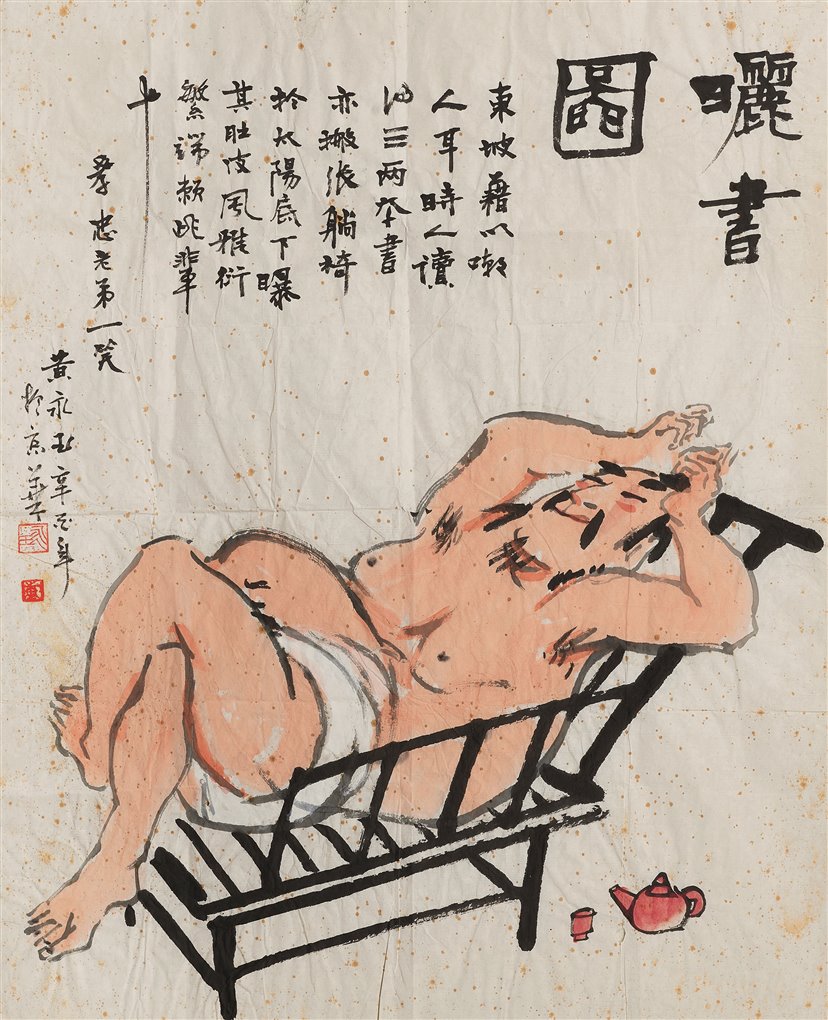 曬書
圖
東坡藉以嘲
人耳時人讀
三兩本書
亦搬張躺椅
於太陽底下曝
其肚皮風雅衍
繁端賴此輩
孝忠老弟一笑
黄永玉辛酉年
於京華